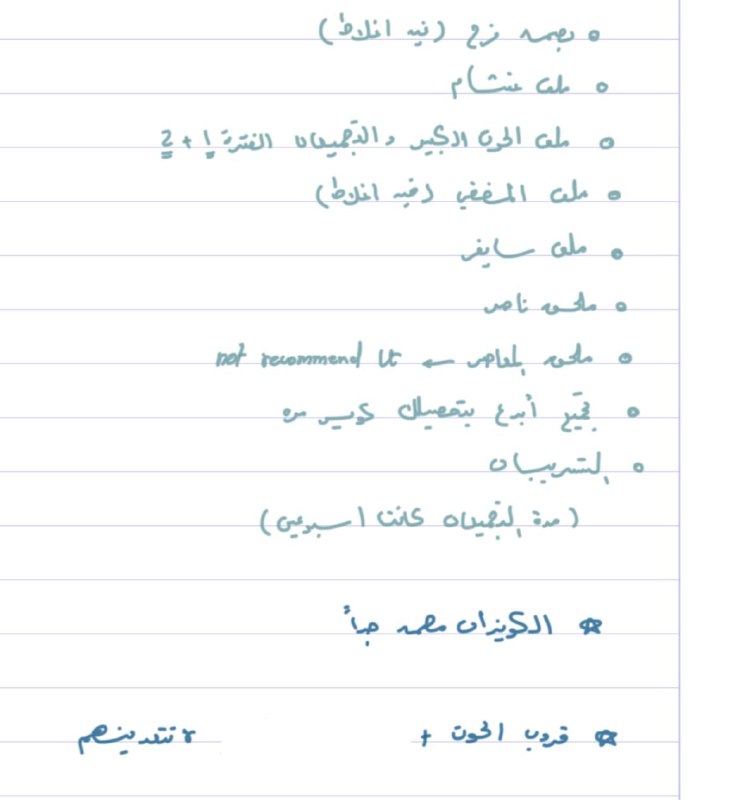 بصمه فرح (فيه اغلاط)
ملف هشام
ملف الحوت الكبير والتجميعات الفترة 1 + 2
ملف (فيه اغلاط)
ملف سايفر
ملحق ناصر
ملحق المعاصر ← not recommend it
تجميع أبدع بتحصيلك كويس مره
التسريبات
(مدة التجميعات كانت اسبوعين)
☆ الكويزات مهمه جداً
☆ قروب الحوت + لا تتعدينهم